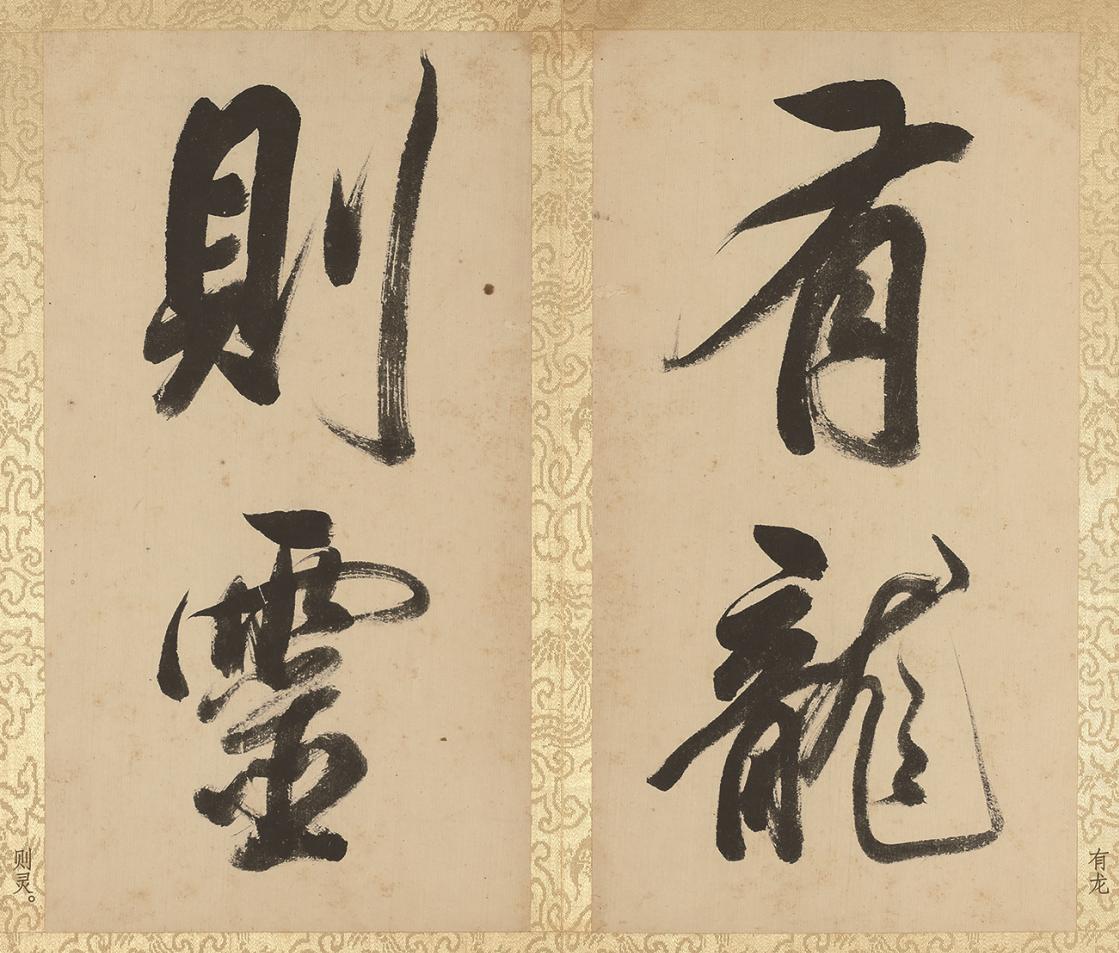 有龍
則靈
有龙
则灵。